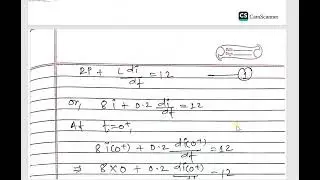 CS CamScanner
Ri + L di/dt = 12 ——— ①
or, 8i + 0.2 di/dt = 12
At t=0⁺,
8i(0⁺) + 0.2 di(0⁺)/dt = 12
⇒ 8×0 + 0.2 di(0⁺)/dt = 12